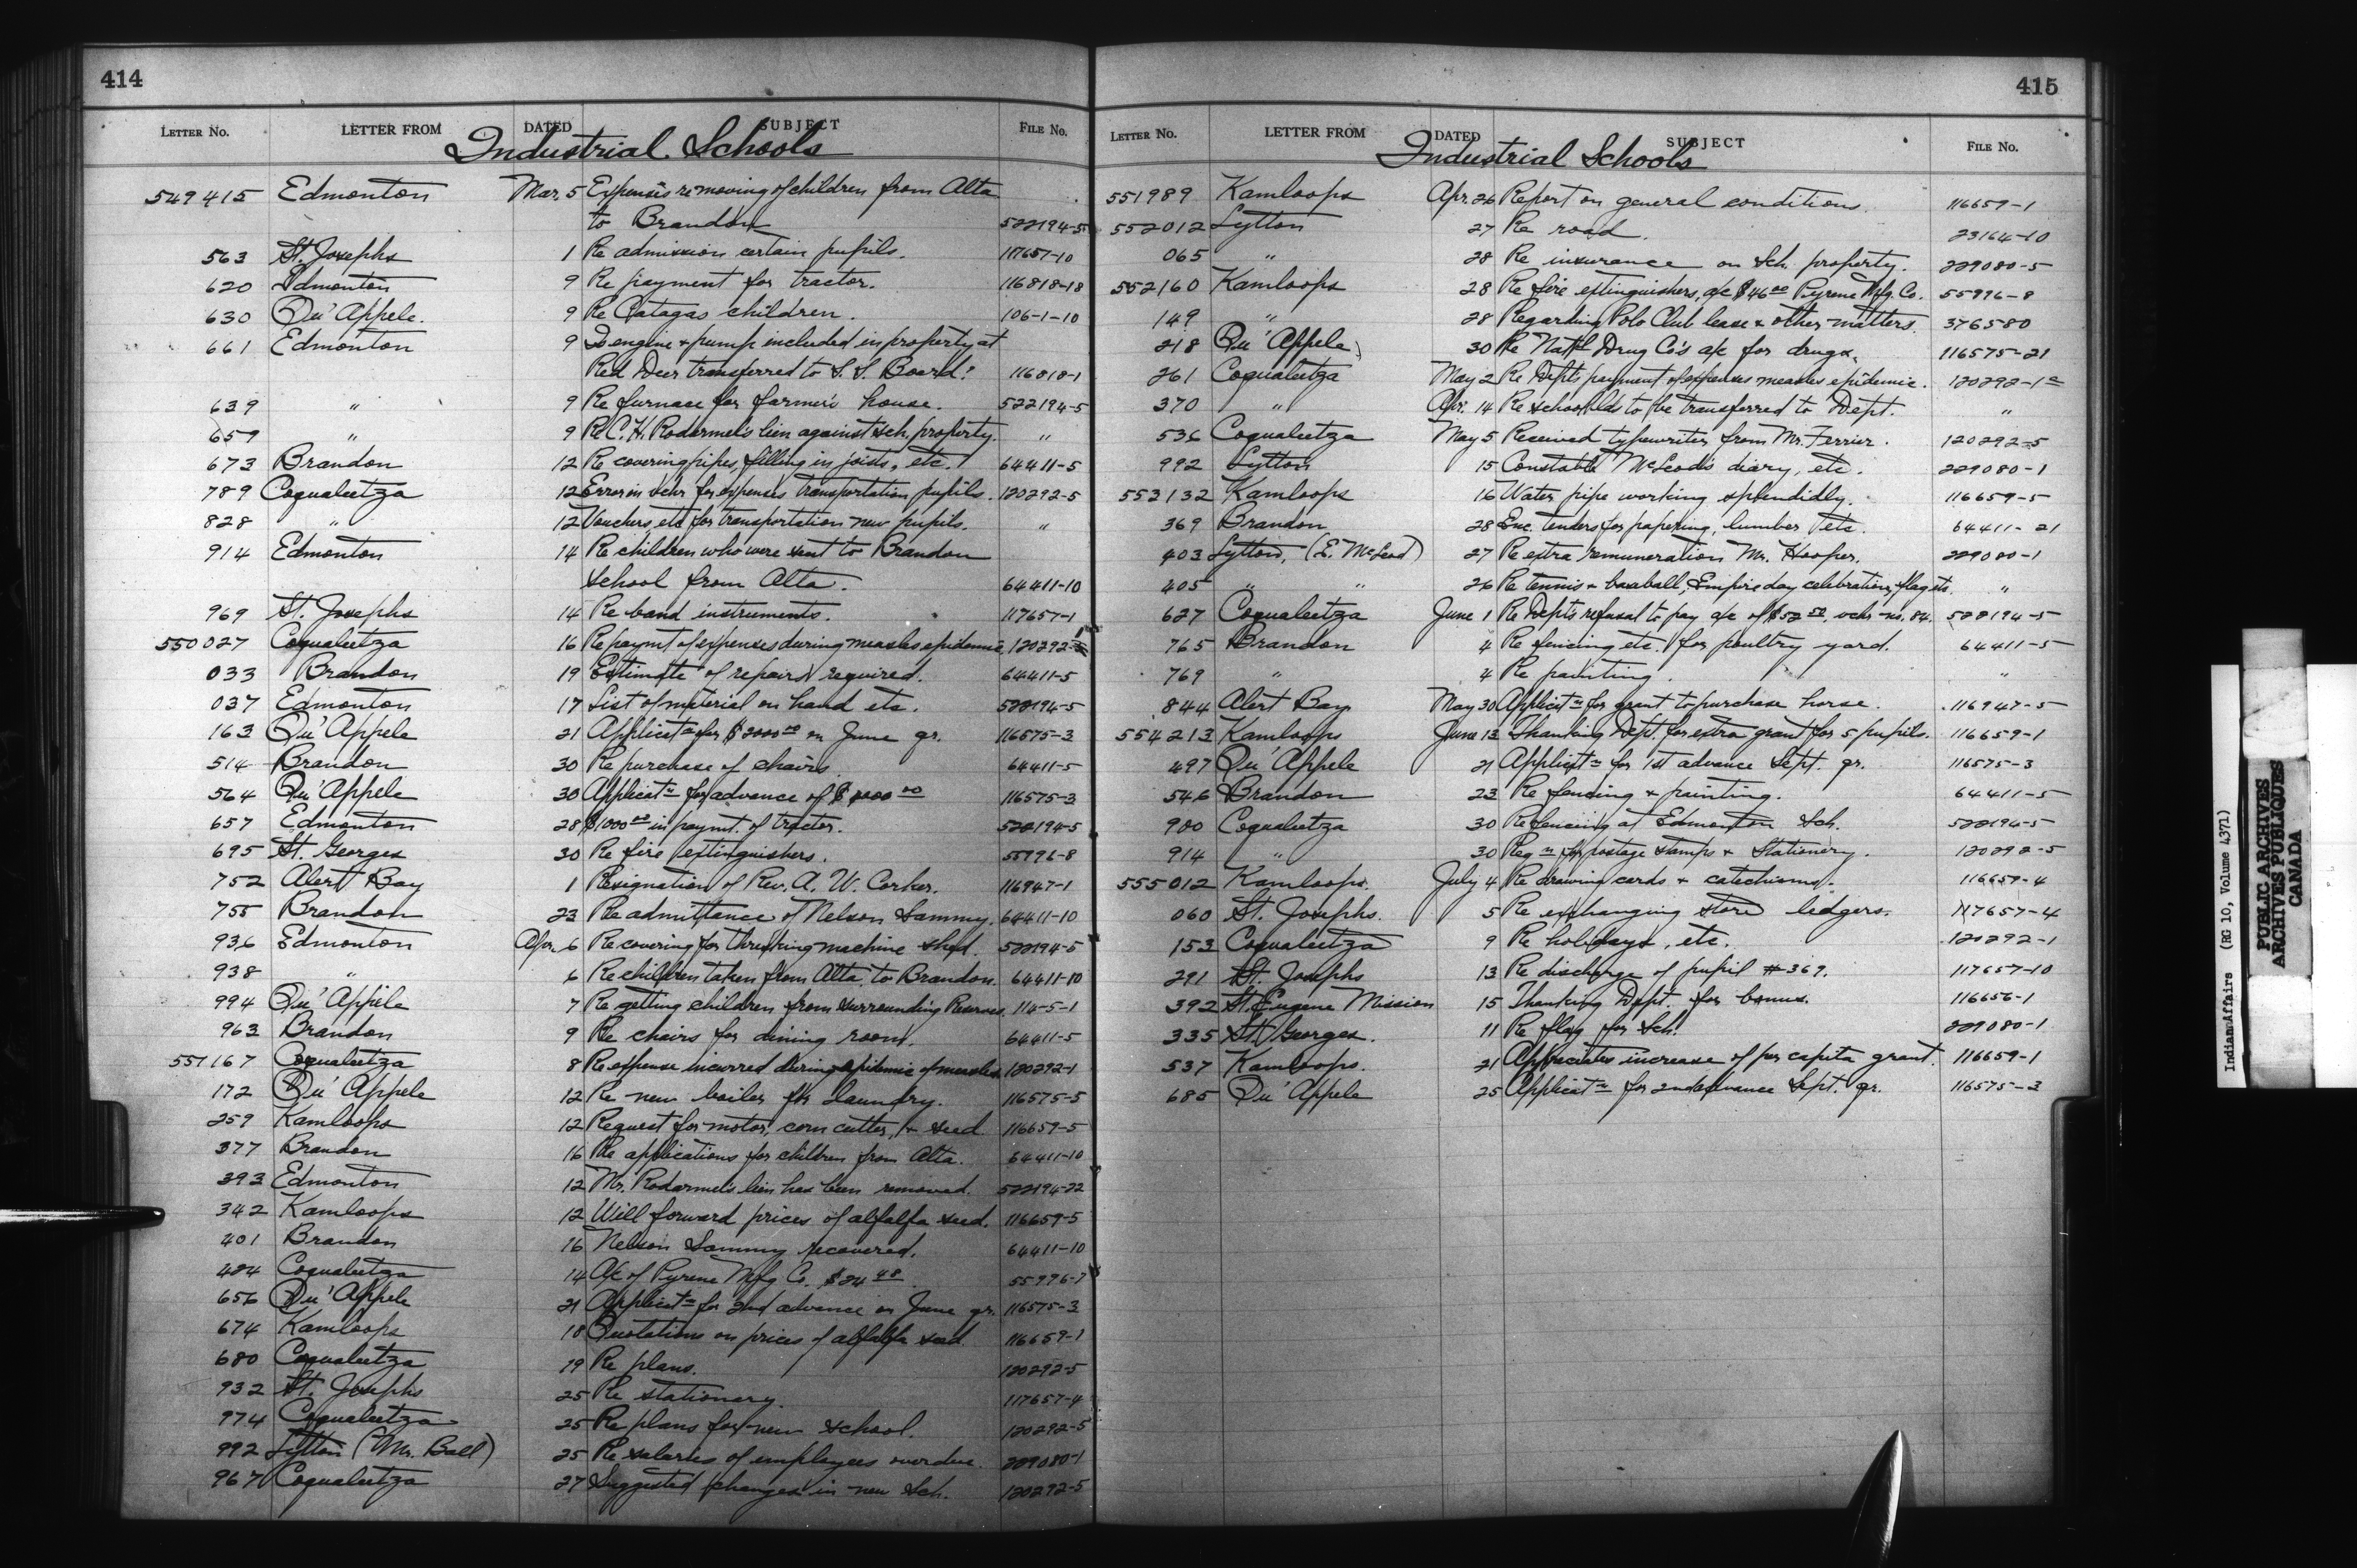 414
LETTER NO. LETTER FROM DATED SUBJECT FILE No.
Industrial Schools
549415 Edmonton Mar. 5 Expenses re moving of children from Alta
to Brandon 522194-5
563 St. Josephs 1 Re admission certain pupils. 117657-10
620 Edmonton 9 Re payment for tractor. 116818-18
630 Qu'Appele. 9 Re Catagas children. 106-1-10
661 Edmonton 9 Is engine & pump included in property at
Red Deer transferred to S. S. Board? 116818-1
639 " 9 Re furnace for farmer's house. 522194-5
659 " 9 Re C. H. Rodarmel's lien against sch. property. "
673 Brandon 12 Re covering pipes, filling in joists, etc. 64411-5
789 Coqualeetza 12 Error in vchr for expenses transportation pupils. 120292-5
828 " 12 Vouchers, etc for transportation new pupils. "
914 Edmonton 14 Re children who were sent to Brandon
school from Alta. 64411-10
969 St. Josephs 14 Re band instruments. 117657-1
550027 Coqualeetza 16 Re paymt of expenses during measles epidemic 120292-
033 Brandon 19 Estimate of repairs required. 64411-5
037 Edmonton 17 List of material on hand etc. 522194-5
163 Qu'Appele 21 Applicatn for $2000.00 on June qr. 116575-3
514 Brandon 30 Re purchase of chairs 64411-5
564 Qu'Appele 30 Applicatn for advance of $ 00 116575-3
657 Edmonton 28 $1000.00 in paymt. of tractor. 522194-5
695 St. Georges 30 Re fire extinguishers. 55996-8
752 Alert Bay 1 Resignation of Rev. A. W. Corker. 116947-1
755 Brandon 23 Re admittance of Nelson Sammy. 64411-10
936 Edmonton Apr. 6 Re covering for threshing machine shed. 522194-5
938 " 6 Re children taken from Alta. to Brandon. 64411-10
994 Qu'Appele 7 Re getting children from surrounding Reserves 114-5-1
963 Brandon 9 Re chairs for dining room. 64411-5
551167 Coqualeetza 8 Re expense incurred during epidemic of measles 120292-1
172 Qu'Appele 12 Re new boiler for laundry. 116575-5
259 Kamloops 12 Request for motor, corn cutter, & seed 116659-5
377 Brandon 16 Re applications for children from Alta. 64411-10
393 Edmonton 12 Mr. Rodarmel's lien has been removed. 522194-22
342 Kamloops 12 Will forward prices of alfalfa seed. 116659-5
401 Brandon 16 Nelson Sammy recovered. 64411-10
484 Coqualeetza 14 A/c of Pyrene Mfg Co. $24.48. 55996-7
656 Qu'Appele 21 Applicatn for 2nd advance on June qr. 116575-3
674 Kamloops 18 Quotations on prices of alfalfa seed 116659-1
680 Coqualeetza 19 Re plans. 120292-5
932 St. Josephs 25 Re stationery. 117657-4
974 Coqualeetza 25 Re plans for new school. 120292-5
992 Lytton (Mr. Ball) 25 Re salaries of employees overdue 229080-1
967 Coqualeetza 27 Suggested changes in new Sch. 120292-5
415
LETTER NO. LETTER FROM DATED SUBJECT FILE No.
Industrial Schools
551989 Kamloops Apr. 26 Report on general conditions. 116659-1
552012 Lytton 27 Re road. 23164-10
065 " 28 Re insurance on Sch. property. 229080-5
552160 Kamloops 28 Re fire extinguishers, a/c $46.00 Pyrene Mfg. Co. 55996-8
149 " 28 Regarding Polo Club lease & other matters. 376580
218 Qu'Appele 30 Re Nat'l Drug Co's a/c for drugs. 116575-21
261 Coqualeetza May 2 Re Depts payment of expenses measles epidemic. 120292-1
370 " Apr. 14 Re school blds to be transferred to Dept. "
536 Coqualeetza May 5 Received typewriter from Mr. Ferrier. 120292-5
992 Lytton 15 Constable McLeod's diary, etc. 229080-1
553132 Kamloops 16 Water pipe working splendidly. 116659-5
369 Brandon 28 Enc. tenders for papering, lumber etc. 64411-21
403 Lytton, (E. McLeod) 27 Re extra remuneration Mr. Hooper. 229080-1
405 " " 26 Re tennis & baseball, Empire day celebration, flag etc. "
627 Coqualeetza June 1 Re Depts refusal to pay a/c of $52.50, vchr no. 84. 522194-5
765 Brandon 4 Re fencing etc. for poultry yard. 64411-5
769 " 4 Re painting. "
844 Alert Bay May 30 Applicatn for grant to purchase horse. 116947-5
554213 Kamloops June 13 Thanking Dept. for extra grant for 5 pupils. 116659-1
497 Qu'Appele 21 Applicatn for 1st advance Sept. qr. 116575-3
546 Brandon 23 Re fencing & painting. 64411-5
900 Coqualeetza 30 Re fencing at Edmonton Sch. 522194-5
914 " 30 Reqn for postage stamps & Stationery. 120292-5
555012 Kamloops. July 4 Re drawing cards & catechisms. 116659-4
060 St. Josephs. 5 Re exchanging store ledgers. 117657-4
153 Coqualeetza 9 Re holidays, etc. 120292-1
291 St. Josephs 13 Re discharge of pupil #369. 117657-10
392 St. Eugene Mission 15 Thanking Dept. for bonus. 116656-1
335 St. Georges. 11 Re flag for Sch. 229080-1
537 Kamloops. 21 Appreciates increase of per capita grant. 116659-1
685 Qu'Appele 25 Applicatn for 2nd advance Sept. qr. 116575-3
Indian Affairs (RG 10, Volume 4371)
PUBLIC ARCHIVES
ARCHIVES PUBLIQUES
CANADA